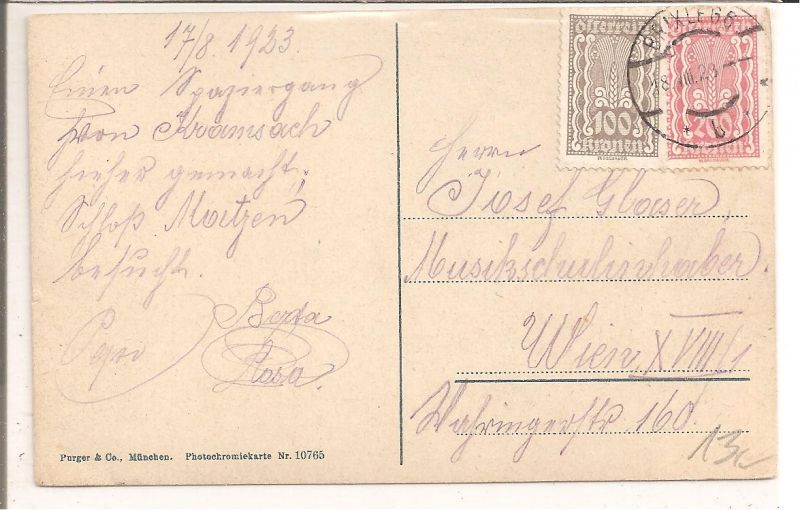 17/8 1923.
Einen Spaziergang
von Kramsach
hieher gemacht,
Schloß Matzen
besucht.
Berta
Pepi
Rosa.
Purger & Co., München. Photochromiekarte Nr. 10765
Österreich
100
Kronen
200
Kronen
BRIXLEGG
18.VIII.23
* b *
Herrn
Josef Glaser
Musikschulinhaber
Wien XVIII/1
Währingerstr 160.